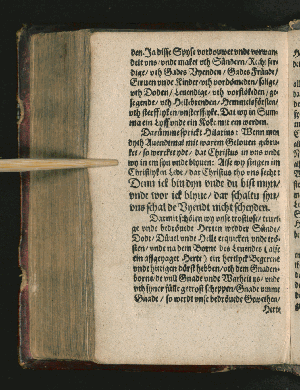 den. Ja disse Spyse vordouwet vnde vorwan
delt vns / vnde maket vth Sündern / Rechtfer
dige / vth Gades Vyenden / Gades Fründe /
Eruen vnde Kinder / vth vordömeden / salige /
vth Doden / Leuendige / vth vorstökeden / ge-
segende / vth Hellebrenden / Hemmelsförsten /
vth steerfflyken / vnsterfflyke. Dat wy in Sum
ma ein Lyff vnde ein Koke mit em werden.
Darümme sprickt Hilarius: Wenn men
dyth Auendtmal mit warem Gelouen gebru-
ket / so wercket ydt / dat Christus in vns vnde
wy in em syn vnde blyuen: Alse wy singen im
Christlyken Lede / dat Christus tho vns secht:
Denn ick bin dyn vnde du bist myn /
vnde wor ick blyue / dar schaltu syn /
vns schal de Vyendt nicht scheyden.
Darmit schölen wy vnse trostlose / trurí-
ge vnde bedröuede Herten wedder Sünde /
Dodt / Düuel vnde Helle erquicken vnde trö-
sten / vnde na dem Borne des Leuendes (alse
ein affgeyaget Herte) ein hertlyck Begerent
vnde hittigen dörst hebben / vth dem Gnaden-
borne / de vull Gnade vnde Warheit ys / vnde
vth syner fülle getrost scheppen / Gnade vmme
Gnade / so werdt vnse bedröuede Geweten /
Herte